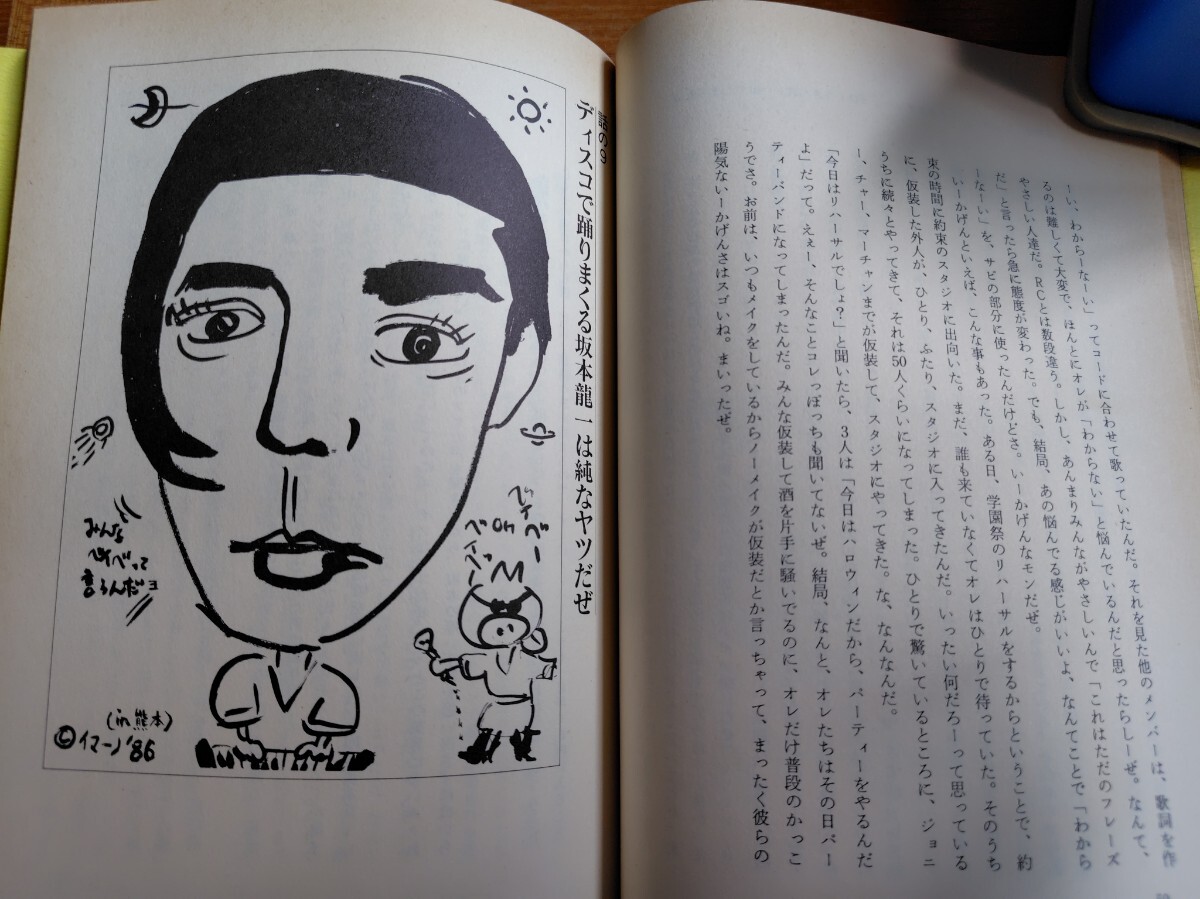 ーい、わからーなーい」ってコードに合わせて歌っていたんだ。それを見た他のメンバーは、歌詞を作
るのは難しくて大変で、ほんとにオレが「わからない」と悩んでいるんだと思ったらしーぜ。なんて、
やさしい人達だ。RCとは数段違う。しかし、あんまりみんながやさしいんで「これはただのフレーズ
だ」と言ったら急に態度が変わった。でも、結局、あの悩んでる感じがいいよ、なんてことで「わから
ーなーい」を、サビの部分に使ったんだけどさ。いーかげんなモンだぜ。
いーかげんといえば、こんな事もあった。ある日、学園祭のリハーサルをするからということで、約
束の時間に約束のスタジオに出向いた。まだ、誰も来ていなくてオレはひとりで待っていた。そのうち
に、仮装した外人が、ひとり、ふたり、スタジオに入ってきたんだ。いったい何だろーって思っている
うちに続々とやってきて、それは50人くらいになってしまった。ひとりで驚いているところに、ジョニ
ー、チャー、マーチャンまでが仮装して、スタジオにやってきた。な、なんなんだ。
「今日はリハーサルでしょ？」と聞いたら、3人は「今日はハロウィンだから、パーティーをやるんだ
よ」だって。えぇー、そんなことコレっぽっちも聞いてないぜ。結局、なんと、オレたちはその日パー
ティーバンドになってしまったんだ。みんな仮装して酒を片手に騒いでるのに、オレだけ普段のかっこ
うでさ。お前は、いつもメイクをしているからノーメイクが仮装だとか言っちゃって、まったく彼らの
陽気ないーかげんさはスゴいね。まいったぜ。
話の9
ディスコで踊りまくる坂本龍一は純なヤツだぜ
oh
ベイベー
みんな
言うんだヨ
(in熊本)
©イマーノ'86